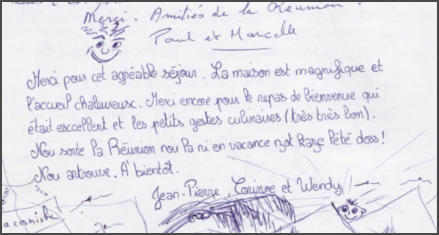 Merci. Amitiés de la Réunion.
Paul et Marcelle
Merci pour cet agréable séjour. La maison est magnifique et
l'accueil chaleureux. Merci encore pour le repas de bienvenue qui
était excellent et les petits gestes culinaires (très très bon).
Nou sorte La Réunion nou la ni en vacance zot kaze lété doss!
Nou artrouve. À bientôt.
Jean-Pierre, Corinne et Wendy